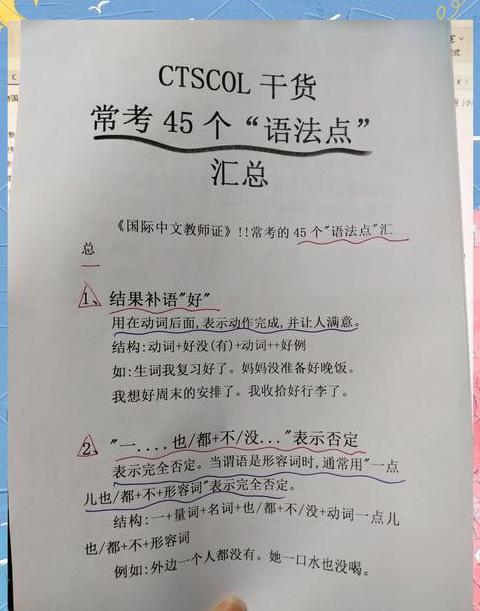 CTSCOL 干货
常考 45 个“语法点”
汇总
《国际中文教师证》!!常考的 45 个"语法点"汇
总
1、结果补语"好"
用在动词后面,表示动作完成,并让人满意。
结构:动词+好没(有)+动词++好例
如:生词我复习好了。妈妈没准备好晚饭。
我想好周末的安排了。我收拾好行李了。
2、"一....也/都+不/没..."表示否定
表示完全否定。当谓语是形容词时,通常用"一点
儿也/都+不+形容词"表示完全否定。
结构:一+量词+名词+也/都+不/没+动词一点儿
也/都+不+形容词
例如:外边一个人都没有。她一口水也没喝。